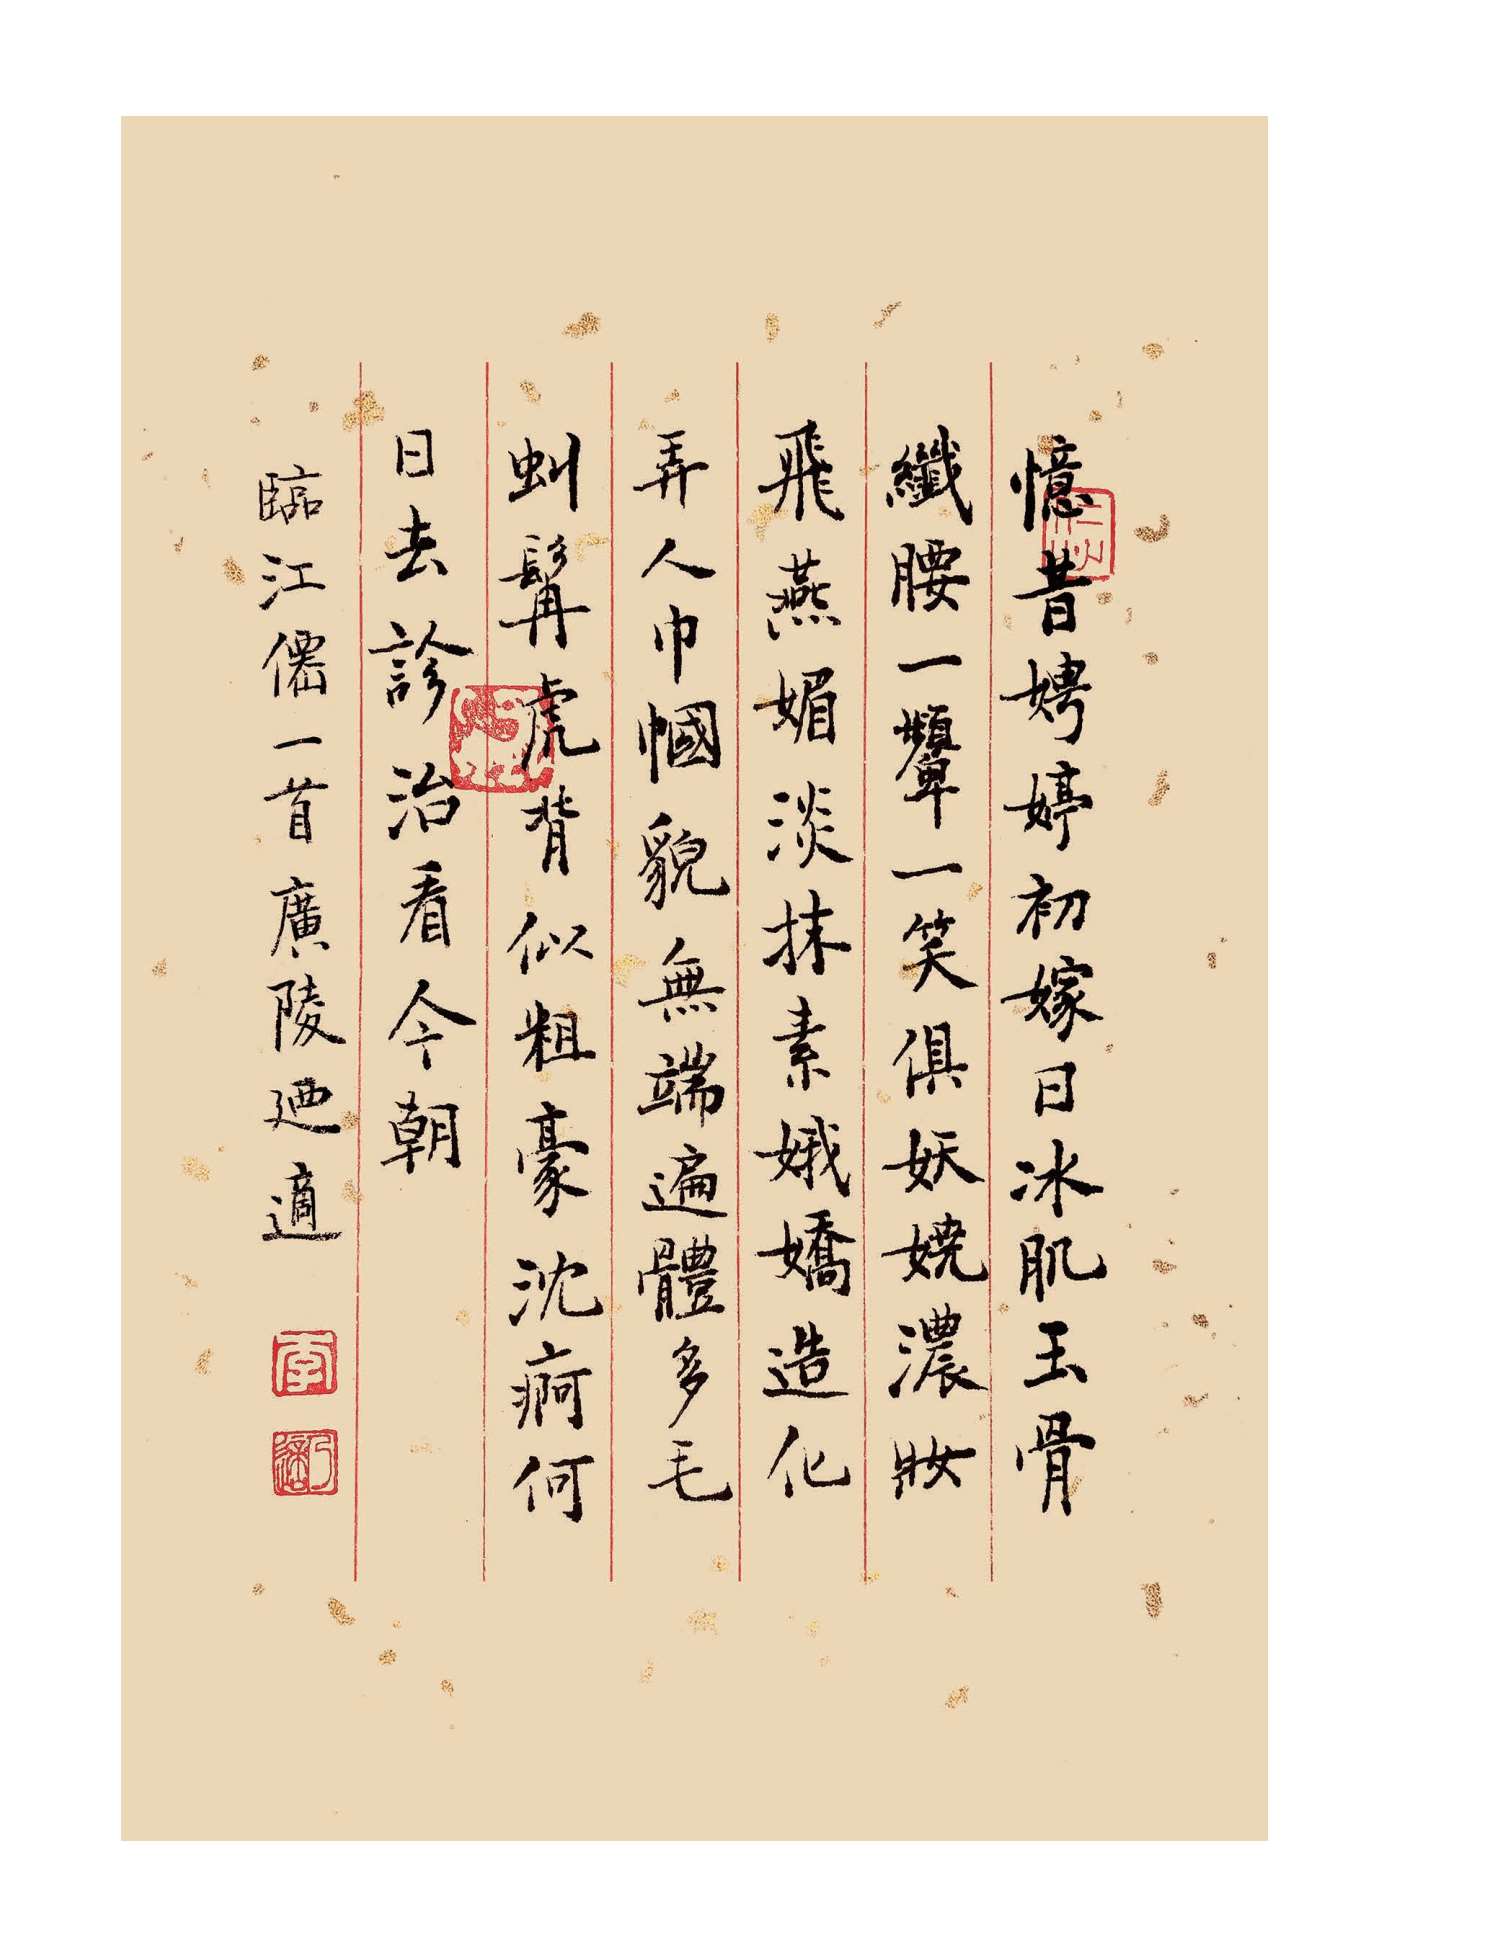 憶昔娉婷初嫁日冰肌玉骨
纖腰一顰一笑俱妖嬈濃妝
飛燕媚淡抹素娥嬌造化
弄人巾幗貌無端遍體多毛
虯髯虎背似粗豪沈痾何
日去診治看今朝
臨江僊一首廣陵迺適